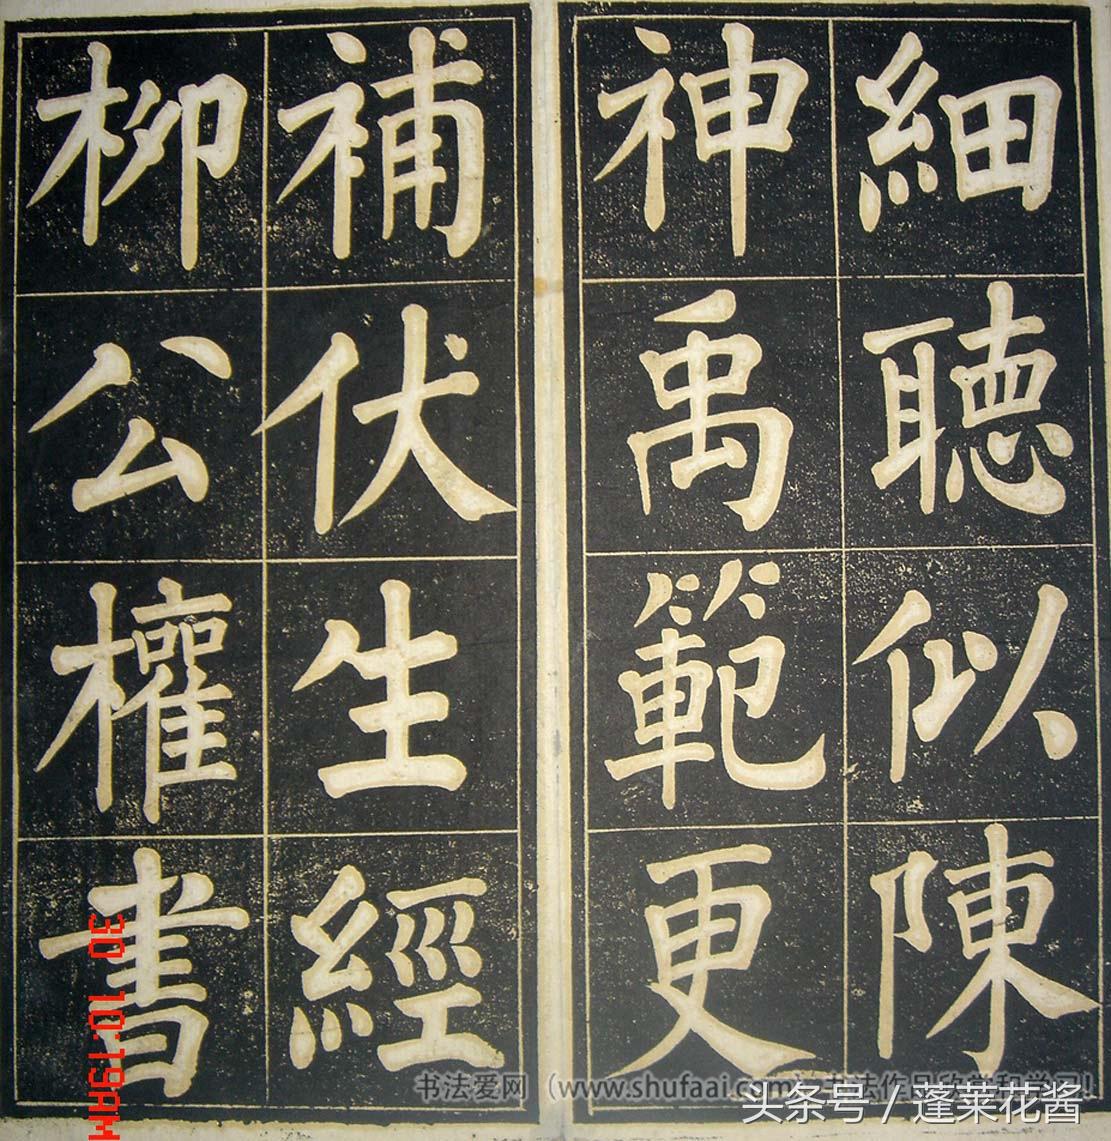 細聽似陳
神禹範更
補伏生經
柳公權書
30 10:19AM
书法爱网（www.shufaai.com）书法作品欣赏和学习!
头条号 / 蓬莱花酱